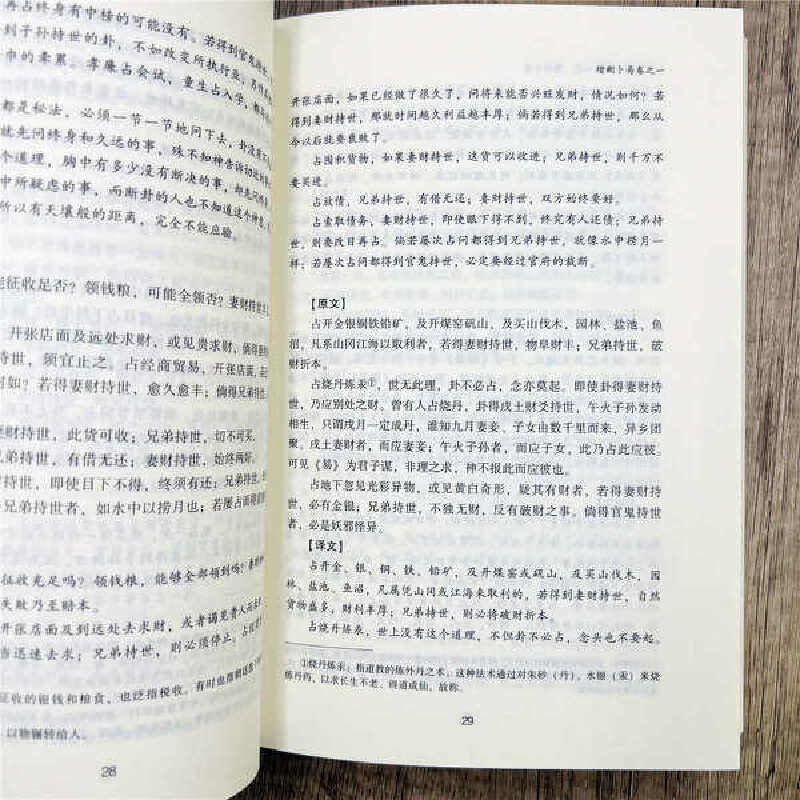 再占终身有中榜的可能没有。若得到官鬼
到子孙持世的卦，不如改变所执行业
占会试，童生占入学
都是秘法，必须一节一节地问下去
就先问终身和久远的事，殊不知神告
个道理，胸中有多少没有断决的事
中所疑虑的事，而断卦的人也不知道这个
所以有天壤般的距离，完全不能应验。
能征收足否？领钱粮，可能全领否？妻财持世
开张店面及远处求财，或见贵求财，倘得
持世，须宜止之。占经商贸易，开张店
何如？若得妻财持世，愈久愈丰；倘得兄弟持世
财持世，此货可收；兄弟持世，切不可买。
持世，有借无还；妻财持世，始终两好。
持世，即使目下不得，终须有还；兄弟持
兄弟持世者，如水中以捞月也；若屡占
征收充足吗？领钱粮，能够全部领到吗？
失败乃至赔本。
开张店面及到远处去求财，或者谒见贵人
当迅速去求；兄弟持世，则必须停止
征收的银钱和粮食，也泛指税收。
，以物辗转给人。
28
增删卜易卷之一
开张店面，如果已经做了很久了，问将来能否兴旺发财，情况如何？若
得到妻财持世，那就时间越久利益越丰厚；倘若得到兄弟持世，那么从
今以后就要衰败了。
占囤积货物，如果妻财持世，这货可以收进；兄弟持世，则千万不
要买进。
占放债，兄弟持世，有借无还；妻财持世，双方始终要好。
占索取债务，妻财持世，即使眼下得不到，终究有人还债，兄弟持
世，则要改日再占。倘若屡次占问都得到兄弟持世，就像水中捞月一
样；若屡次占问都得到官鬼持世，必定要经过官府的裁断。
【原文】
占开金银铜铁铅矿，及开煤窑矾山，及买山伐木，园林、盐池、鱼
沼，凡系山冈江海以取利者，若得妻财持世，物阜财丰；兄弟持世，破
财折本。
占烧丹炼汞①，世无此理，卦不必占，念亦莫起。即使卦得妻财持
世，乃应别处之财。曾有人占烧丹，卦得戌土财爻持世，午火子孙发动
相生，只谓戌月一定成丹，谁知九月妻妾、子女由数千里而来，异乡团
聚。戌土妻财者，而应妻妾；午火子孙者，而应子女，此乃占此应彼。
可见《易》为君子谋，非理之求，神不报此而应彼也。
占地下忽见光彩异物，或见黄白奇形，疑其有财者，若得妻财持
世，必有金银；兄弟持世，不独无财，反有破财之事，倘得官鬼持世
者，必是妖邪怪异。
【译文】
占开金、银、铜、铁、铅矿，及开煤窑或矾山，及买山伐木、园
林、盐池、鱼沼，凡属凭山冈或江海来取利的，若得到妻财持世，自然
货物盛多，财利丰厚；兄弟持世，则必将破财折本。
占烧丹炼汞，世上没有这个道理，不但卦不必占，念头也不要起。
①烧丹炼汞：指道教的炼外丹之术。这种法术通过对朱砂（丹）、水银（汞）来烧
炼丹药，以求长生不老、得道成仙，故称。
29